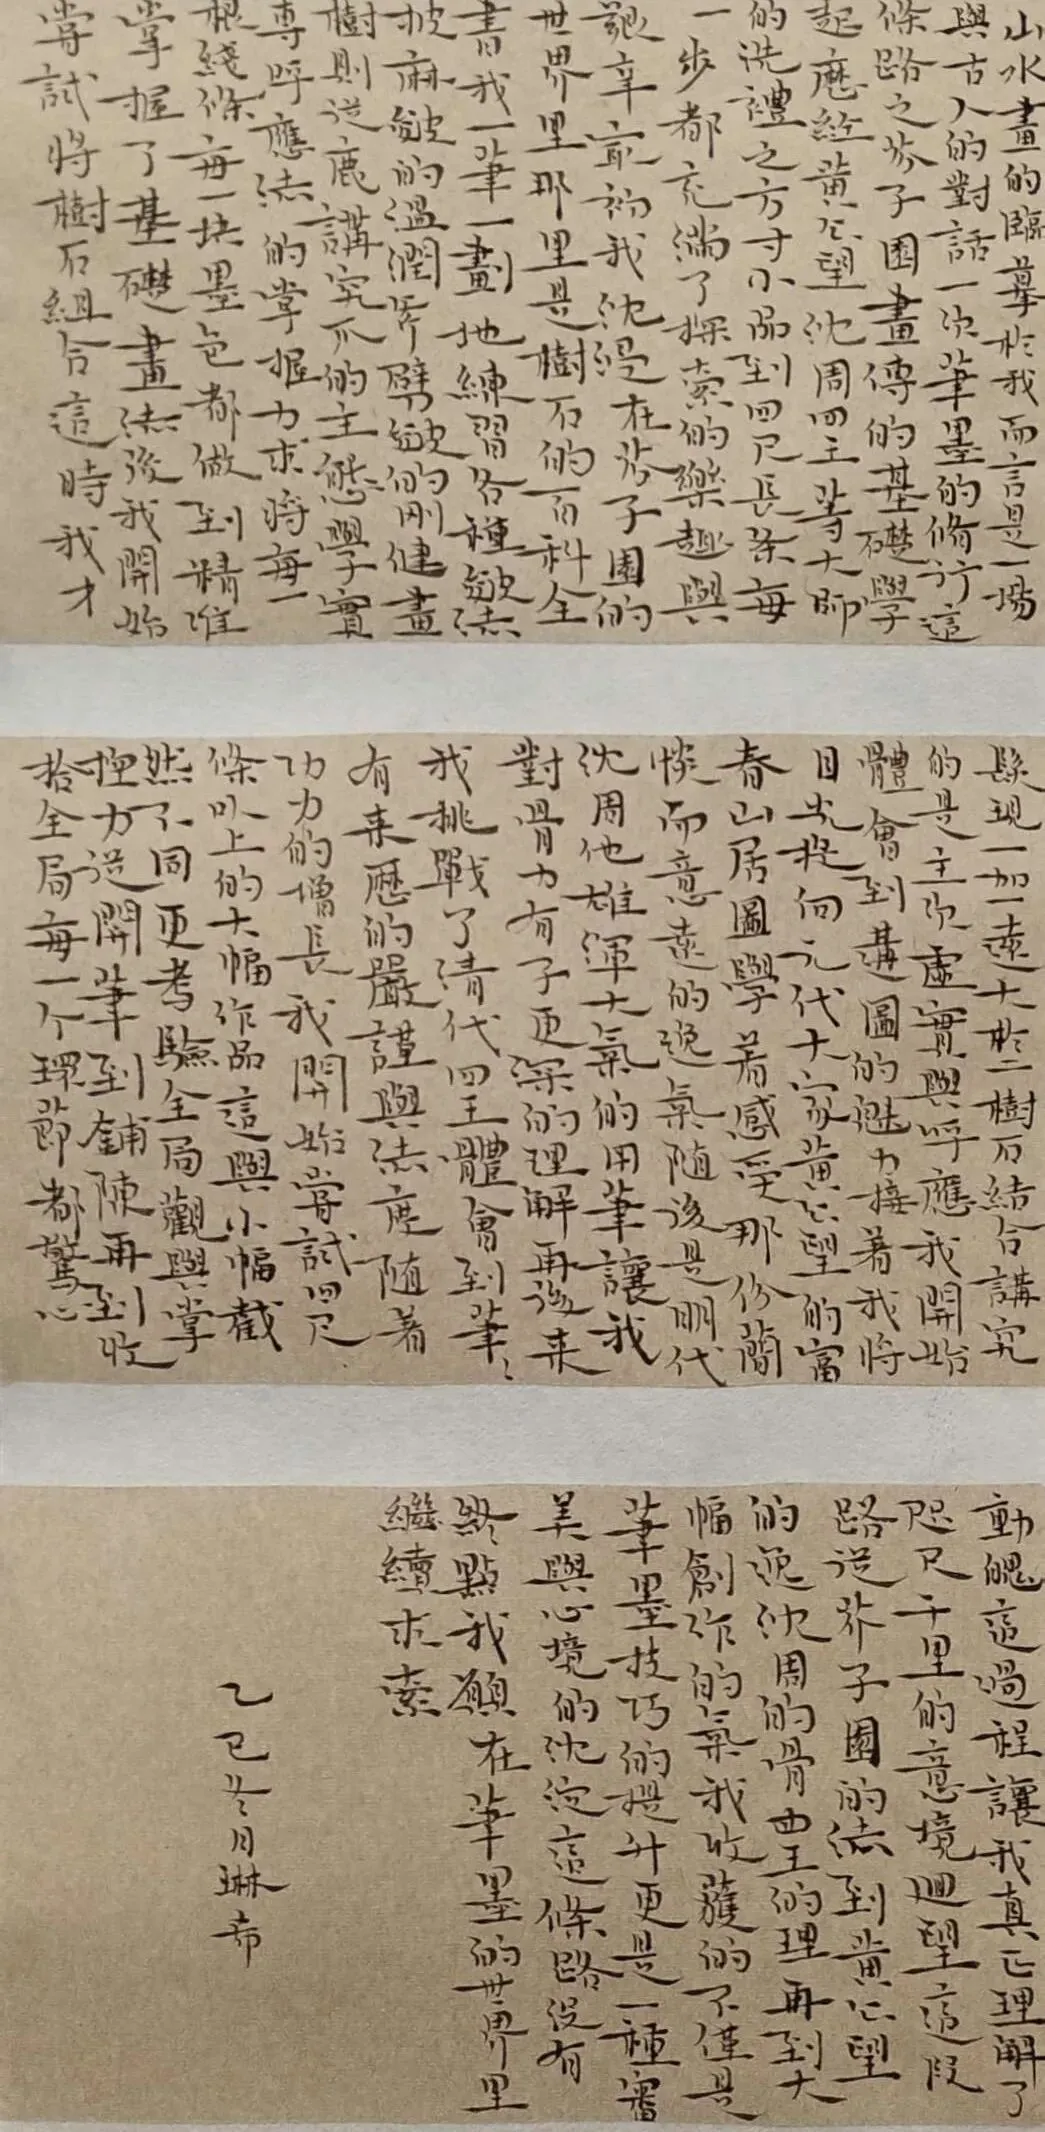 山水畫的臨摹於我而言是一場
與古人的對話一次筆墨的脩行這
條路之芥子園畫傳的基礎學
起歷經黃公望沈周四王等大師
的洗禮之方寸小品到四尺長条每
一步都充滿了探索的樂趣與
艱辛最初我沈浸在芥子園的
世界里那里是樹石的百科全
書我一筆一劃地練習各種皴法
披麻皴的溫潤斧劈皴的剛健畫
樹則從鹿講究爪的主態學實
專呼應法的掌握力求將每一
根綫條每一块墨色都做到精准
掌握了基礎畫法後我開始
嘗試將樹石組合這時我才
發現一加一遠大於二樹石結合講究
的是主次虛實與呼應我開始
體會到構圖的魅力接着我將
目光投向元代大家黃公望的富
春山居圖學着感受那份簡
淡而意遠的逸氣随後是明代
沈周他雄渾大氣的用筆讓我
對骨力有了更深的理解再後来
我挑戰了清代四王體會到筆〻
有来歷的嚴謹與法度随着
功力的增長我開始嘗試四尺
條以上的大幅作品這與小幅截
然不同更考驗全局觀與掌
控力從開筆到鋪陳再到收
拾全局每一个環節都驚心
動魄這過程讓我真正理解了
咫尺千里的意境迴望這段
路從芥子園的法到黃公望
的逸沈周的骨四王的理再到大
幅創作的氣我收獲的不僅是
筆墨技巧的提升更是一種審
美與心境的沈淀這條路没有
終點我願在筆墨的世界里
繼續求索
乙巳冬月琳希